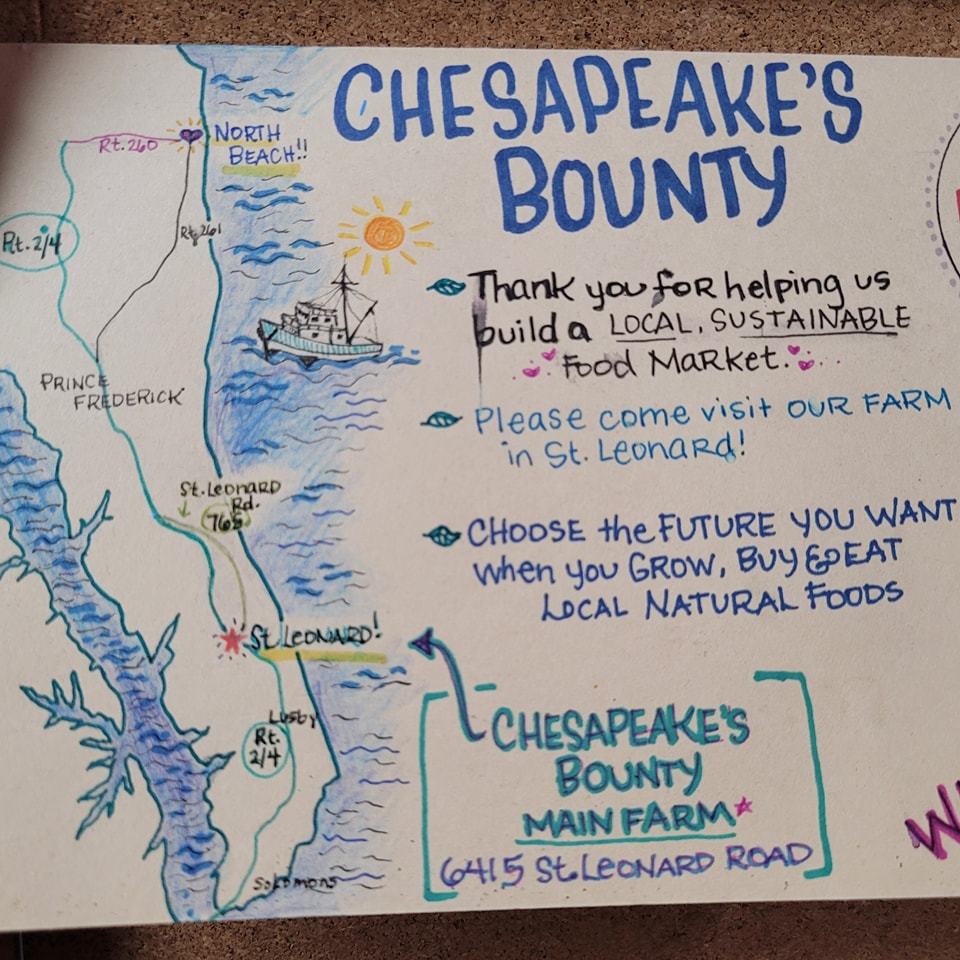 CHESAPEAKE'S
BOUNTY
NORTH
BEACH!!
Rt. 260
Rt. 2/4
Rt. 261
Thank you for helping us
build a LOCAL, SUSTAINABLE
Food Market.
PRINCE
FREDERICK
Please come visit OUR FARM
in St. Leonard!
St. Leonard
Rd.
765
CHOOSE the FUTURE YOU WANT
when you GROW, BUY & EAT
LOCAL NATURAL FOODS
St. LEONARD!
Lusby
Rt.
2/4
Solomons
CHESAPEAKE'S
BOUNTY
MAIN FARM
6415 St. LEONARD ROAD